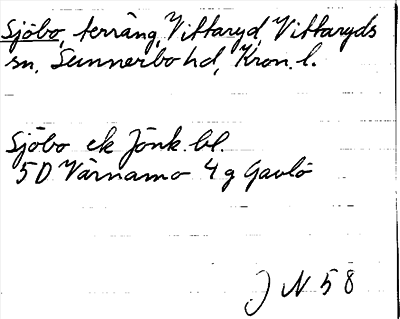 Sjöbo, terräng, Vittaryd, Vittaryds
sn, Sunnerbo hd, Kron. l.
Sjöbo ek Jönk. bl.
5D Värnamo 4g Gavlö
J N 58